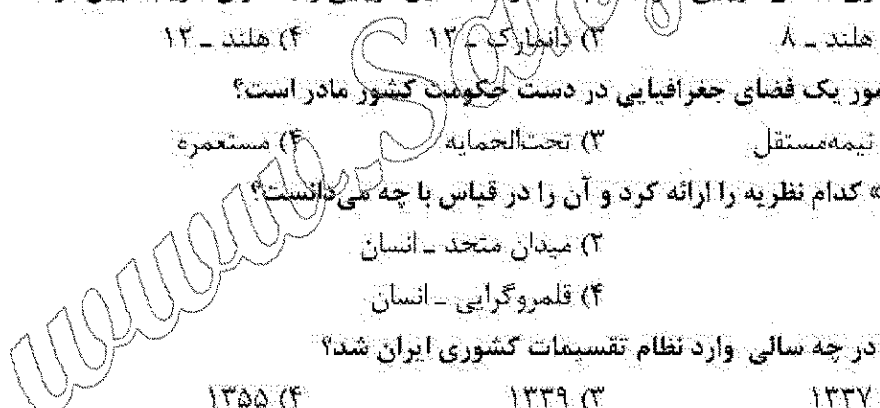 هلند ـ ۸ ۳) دانمارک ـ ۱۲ ۴) هلند ـ ۱۲
مور یک فضای جغرافیایی در دست حکومت کشور مادر است؟
نیمه‌مستقل ۳) تحت‌الحمایه ۴) مستعمره
» کدام نظریه را ارائه کرد و آن را در قیاس با چه می‌دانست؟
۲) میدان متحد ـ انسان
۴) قلمروگرایی ـ انسان
در چه سالی وارد نظام تقسیمات کشوری ایران شد؟
۱۳۳۷ ۳) ۱۳۳۹ ۴) ۱۳۵۵